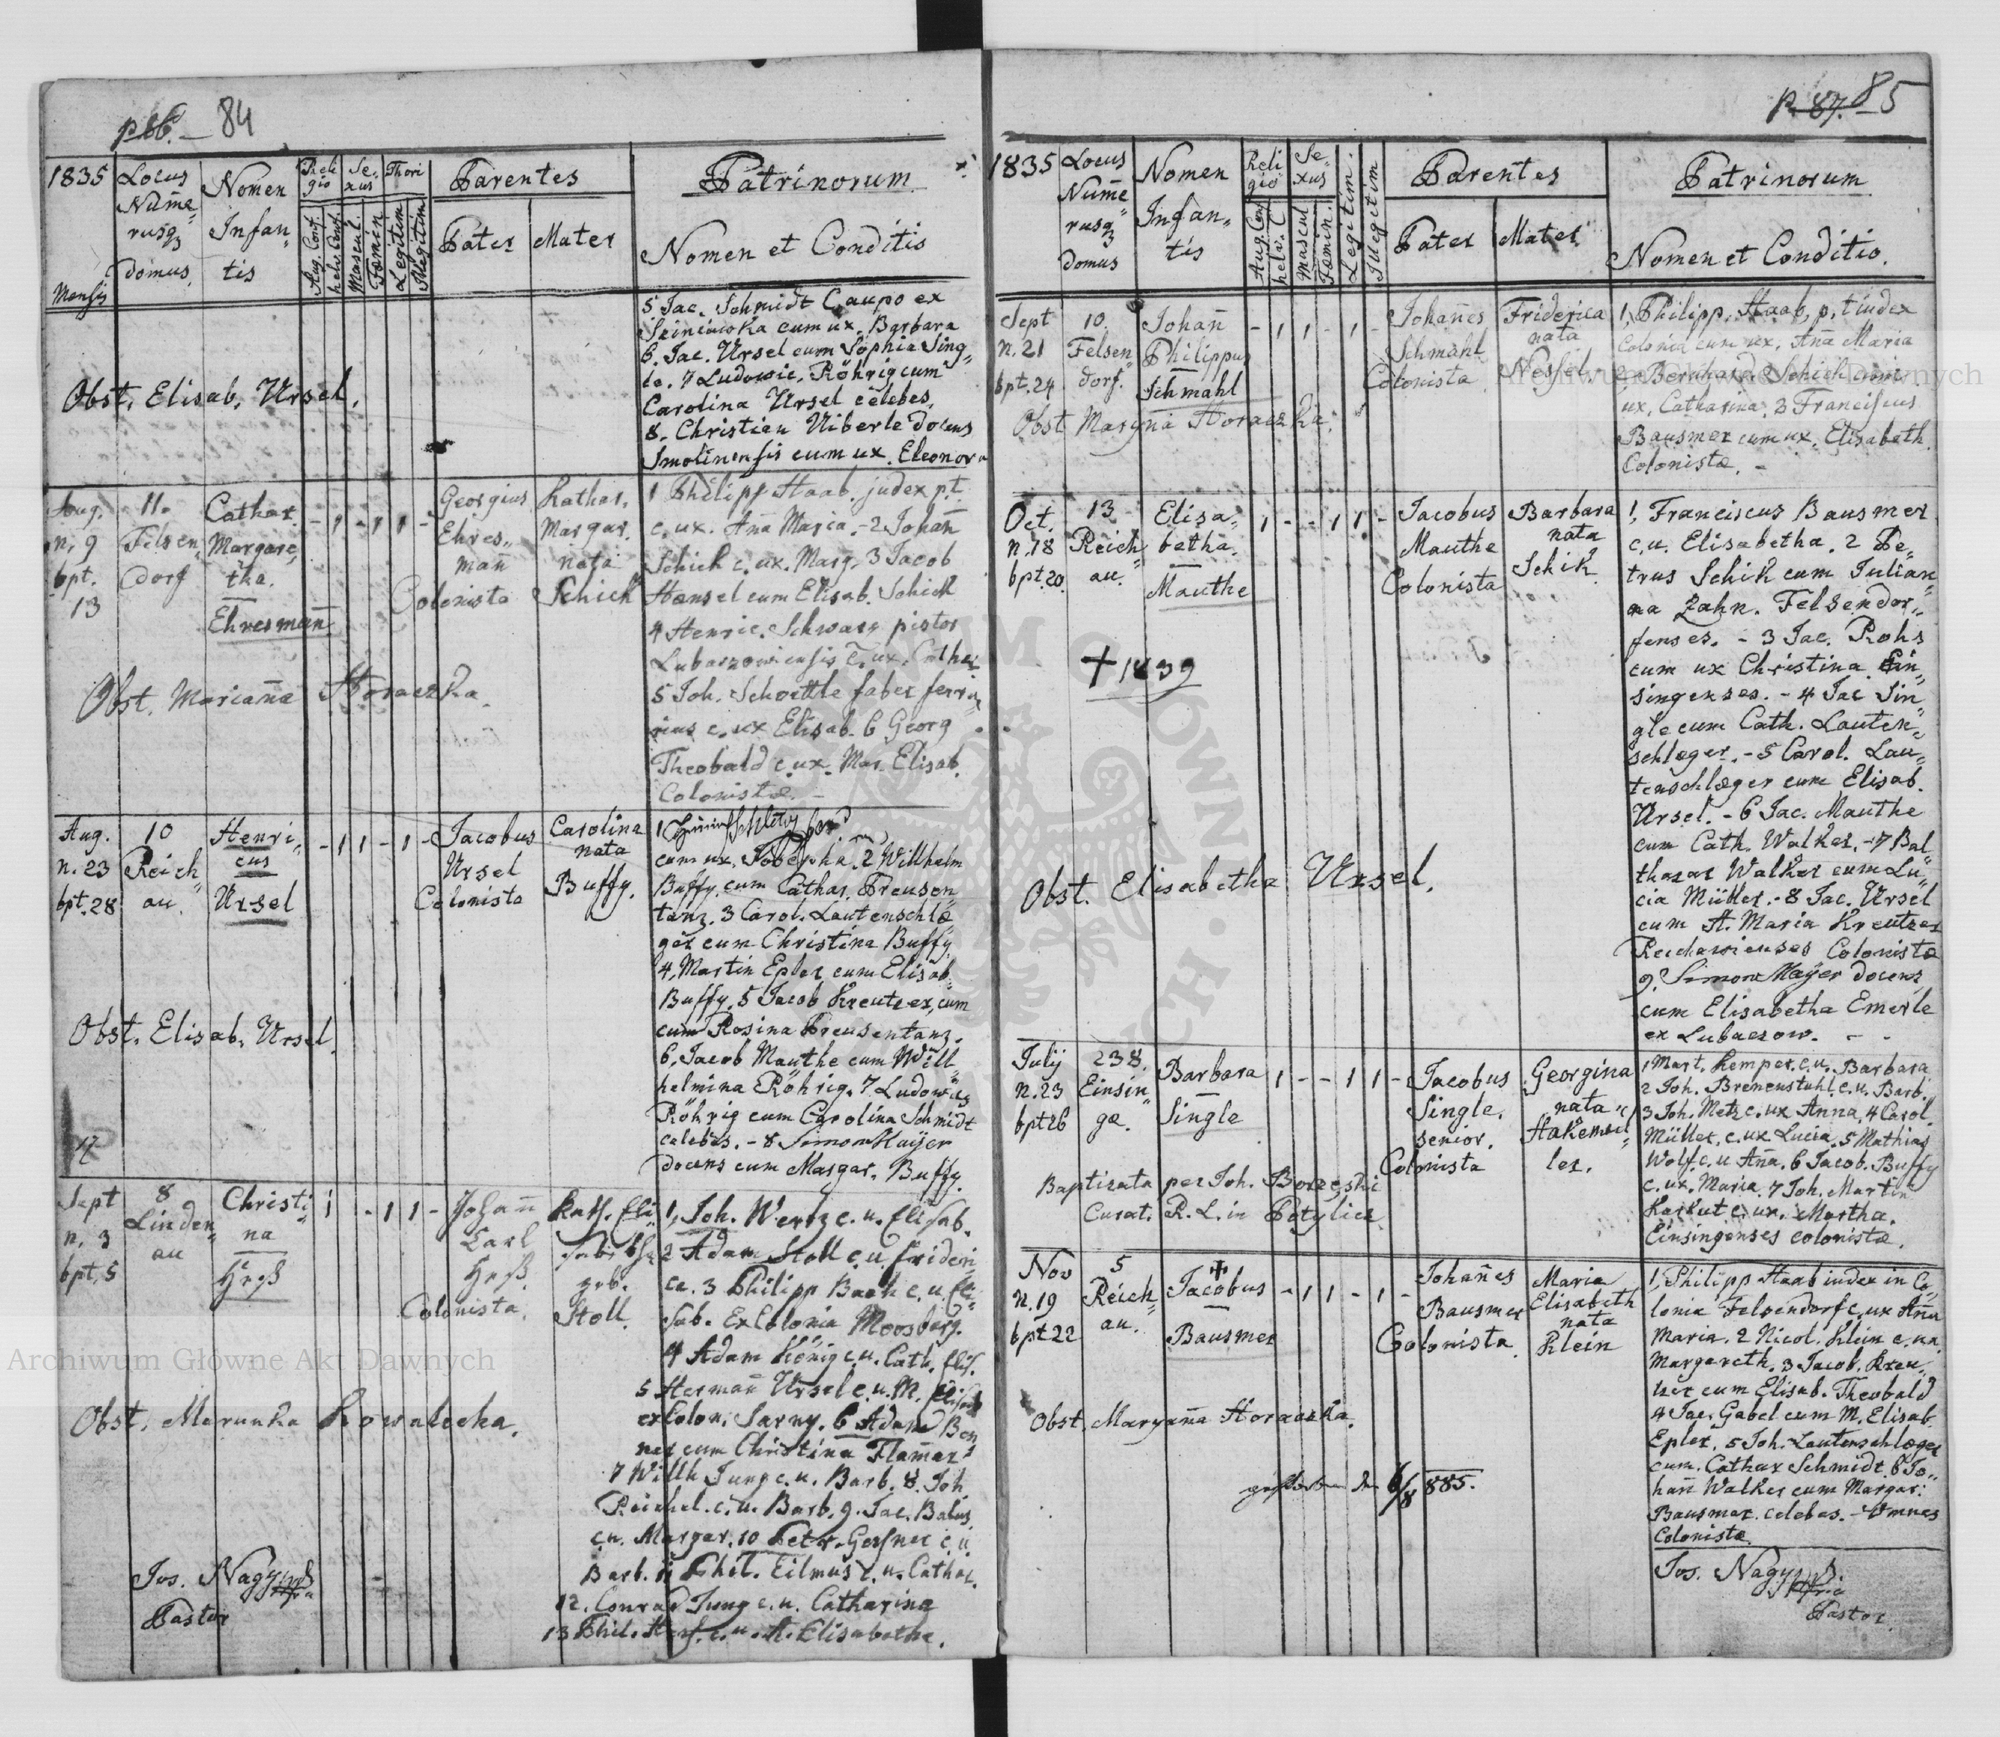 p. 86. – 84
1835 Locus Nume- rusq3 domus. Nomen Infan- tis Reli gio Se- xus Thori Parentes Patrinorum
Mensis Aug. Conf. helv. Conf. Mascul. Fœmin. Legitum Illegitim Pater Mater Nomen et Conditio
5 Jac. Schmidt Caupo ex
cum ux. Barbara
6. Jac. Ursel cum Sophia Sing-
le. 7 Ludowic. Röhrig cum
Carolina Ursel celebes.
8. Christian Uiberle docens
Smolinensis cum ux. Eleonora
Obst. Elisab. Ursel.
Aug.
n. 9
bpt.
13
11.
Felsen-
dorf
Cathar.
Margare-
tha.
Ehresmañ
- 1 - 1 1 -
Georgius
Ehres-
mañ
Colonista
Kathar.
Margar.
nata
Schick
1 Philipp Staab. judex p.t.
c. ux. Aña Maria. - 2 Johañ
Schick c. ux. Marg. 3 Jacob
Hænsel cum Elisab. Schick
4 Henric. Schwarz pistor
Lubaczowiensis c. ux. Cathar.
5 Joh. Schoettle faber ferra-
rius c. ux Elisab. 6 Georg
Theobald c. ux. Mar. Elisab.
Colonistæ. -
Obst. Mariaña Horaczka.
Aug.
n. 23
bpt. 28
10
Reich-
au.
Henri-
cus
Ursel
- 1 1 - 1 -
Jacobus
Ursel
Colonista
Carolina
nata
Buffy.
cum ux. Josepha. 2 Willhelm
Buffy. cum Cathar. Freusen-
tanz. 3 Carol. Lautenschlæ
ger cum Christina Buffy.
4. Martin Epler cum Elisab.
Buffy. 5 Jacob Kreutzer, cum
cum Rosina Freusentanz.
6. Jacob Mauthe cum Will-
helmina Röhrig. 7. Ludowig
Röhrig cum Carolina Schmidt
celebes. - 8 Simon Mayer
docens cum Margar. Buffy.
Obst. Elisab. Ursel.
Sept
n. 3
bpt. 5
8
Linden-
au
Christi-
na
Heß
1 - - 1 1 -
Johañ
Carl
Heß.
Colonista.
Kath. Eli-
sabetha
geb.
Stoll.
1. Joh. Wertz c. u. Elisab.
2 Adam Stoll c. u. Frideri-
ce. 3 Philipp Bach c. u. Eli-
sab. Ex Colonia Moosberg.
4 Adam König c. u. Cath. Elis.
5 Hermañ Ursel c. u. M. Elisab
ex Colon. Sarny. 6 Adam Ben
ner cum Christina Flamer.
7 Willh Jung c. u. Barb. 8. Joh
Reichel. c. u. Barb. 9. Jac. Balus
c. u. Margar. 10 Petr. Gesner c. u.
Barb. 11 Phil. Eilmus c. u. Cathar.
12. Conrad Jung c. u. Catharina
13 Phil. Heß. c. u. A. Elisabetha.
Obst. Marunka Kowalecka.
Jos. Nagy
Pastor
p. 87. 85
1835 Locus Nume- rusq3 domus Nomen Infan- tis Reli gio Se- xus Legitim. Illegitim Parentes Patrinorum
Aug. Conf helv. C. Mascul Fœmin. Pater Mater Nomen et Conditio.
Sept
n. 21
bpt. 24
10.
Felsen
dorf.
Johañ
Philippus
Schmahl
- 1 1 - 1 -
Johañes
Schmahl
Colonista
Friderica
nata
Nessel.
1. Philipp. Staab, p. t iudex
Coloniæ cum ux. Aña Maria
2. Bernhard Schick cum
ux. Catharina. 3 Franciscus
Bausmer cum ux. Elisabeth.
Colonistæ. -
Obst Maryña Horaczka.
Oct.
n. 18
bpt. 20.
13
Reich-
au.
Elisa-
betha.
Mauthe
1 - - 1 1 -
Jacobus
Mauthe
Colonista
Barbara
nata
Schik
1. Franciscus Bausmer
c. u. Elisabetha. 2 Pe-
trus Schik cum Julian-
na Zahn. Felsendor-
fenses. - 3 Jac. Rohs
cum ux Christina Ein-
singenses. - 4 Jac Sin-
gle cum Cath. Lauten-
schlæger. - 5 Carol. Lau-
tenschlæger cum Elisab.
Ursel. - 6 Jac. Mauthe
cum Cath. Walker. - 7 Bal-
thasar Walker cum Lu-
cia Müller. - 8 Jac. Ursel
cum A. Maria Kreutzer
Reichawienses Colonistæ
9. Simon Mayer docens
cum Elisabetha Emerle
ex Lubaczow. - -
+ 1839
Obst. Elisabetha Ursel.
Julij
n. 23
bpt 26
238.
Einsin-
gæ.
Barbara
Single
1 - - 1 1 -
Jacobus
Single.
senior.
Colonista
Georgina
nata
Hakemül-
ler.
1 Mart. Kemper. c. u. Barbara
2 Joh. Brenenstuhl. c. u. Barb.
3 Joh. Metz c. ux Anna. 4 Carol.
Müller. c. ux Lucia. 5 Mathias
Wolf. c. u Aña. 6 Jacob. Buffy
c. ux. Maria. 7 Joh. Martin
Karkut c. ux. Martha.
Einsingenses colonistæ.
Baptizata per Joh.
Curat. R. L. in Potylicz.
Nov
n. 19
bpt 22
5
Reich-
au.
+
Jacobus
Bausmer
- 1 1 - 1 -
Johañes
Bausmer
Colonista
Maria
Elisabeth
nata
Klein
1. Philipp Staab iudex in Co-
lonia Felsendorf c. ux Aña
Maria. 2 Nicol. Klein c. ux.
Margareth. 3 Jacob. Kreu-
tzer cum Elisab. Theobald
4 Jac. Gabel cum M. Elisab
Epler. 5 Joh. Lautenschlæger
cum. Cathar Schmidt. 6 Jo-
hañ Walker cum Margar.
Bausmer. celebes. - Omnes
Colonistæ.
Obst. Maryaña Horaczka.
gestorben den 6/8 885.
Jos. Nagy
Pastor.
Archiwum Główne Akt Dawnych
Archiwum Główne Akt Dawnych